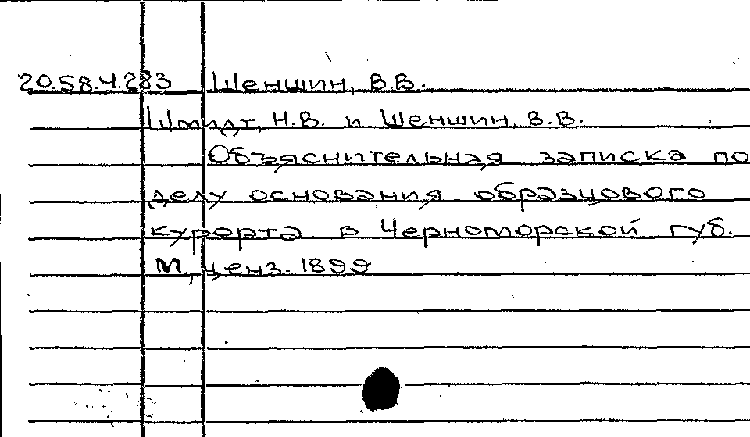 20.58.4.283 Шеншин, В.В.
Шмидт, Н.В. и Шеншин, В.В.
Объяснительная записка по
делу основания образцового
курорта в Черноморской губ.
М, ценз. 1899